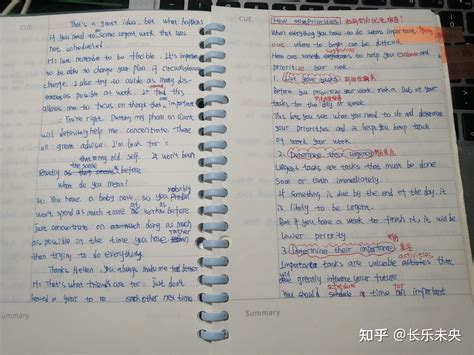 CUE
That's a great idea. but what happens
if you need to do some urgent work that was
not scheduled?
H: I was remember to be flexible. It's important
to be able to change your plan if circumstances
change. I also try to avoid as many dis-
tractions as possible at work. I find this
allows me to focus on things that are important
You're right. Putting my phone on silent
will definitely help me concentrate. These
all great advice. I'm look for
my old self. It won't be
exactly the same as before
what do you mean?
H: You have a baby now, so you probably
won't spend as much time at work as before
just concentrate on doing as much
as possible in the time you have rather
than trying to do everything.
Thanks Helen. You always made me feel better
H: That's what friends are for. just don't
a year to see each other next time
Summary
CUE
How to Prioritise
When everything you have to do seems important, knowing
where to begin can be difficult.
Here are some suggestions to help you evaluate and
prioritise your work.
1. List your tasks
Before you organise your work, make a list of your
tasks for the day or week
This lets you see what you need to do and determine
your priorities and it helps you keep track
of your work.
2. Determine their urgency
Urgent tasks are tasks that must be done
soon or even immediately.
If something is due by the end of the day, it
is likely to be urgent.
But if you have a week to finish it, it will be
lower priority
3. Determine their importance
Important tasks are valuable activities that
will greatly influence your future
You should schedule a time for an important
Summary
知乎 @长乐未央